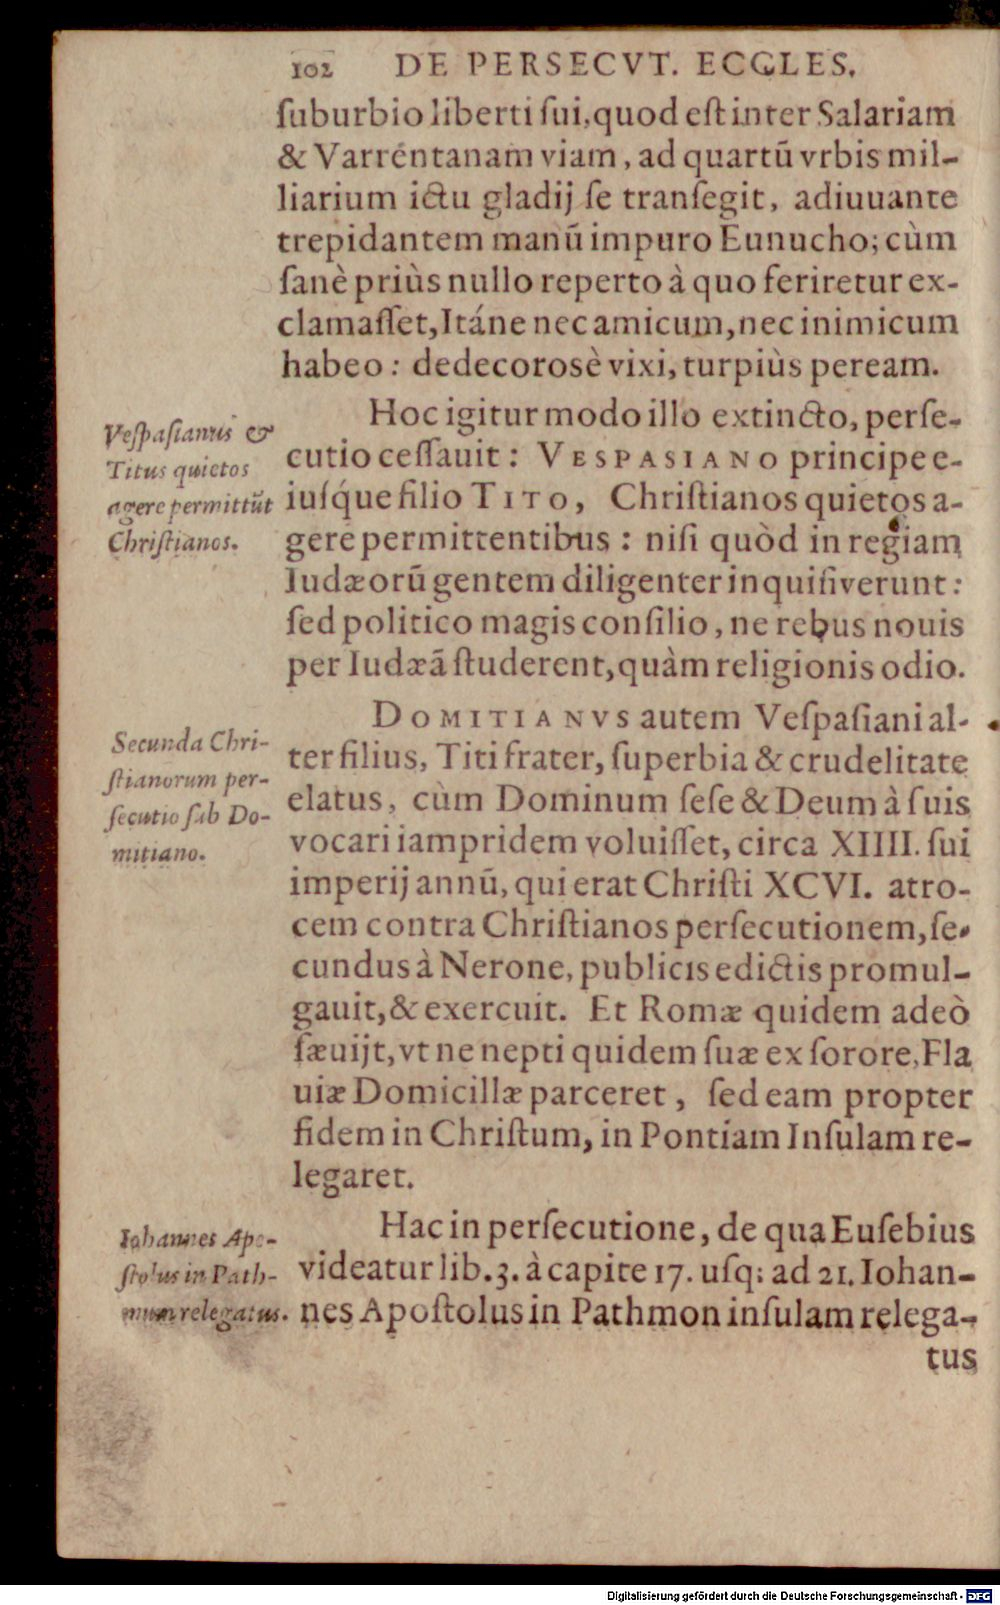 102 DE PERSECVT. ECCLES.
ſuburbio liberti ſui, quod eſt inter Salariam
& Varrentanam viam, ad quartū vrbis mil-
liarium ictu gladij ſe tranſegit, adiuuante
trepidantem manū impuro Eunucho; cùm
ſanè priùs nullo reperto à quo feriretur ex-
clamaſſet, Itáne nec amicum, nec inimicum
habeo: dedecorosè vixi, turpiùs peream.
Hoc igitur modo illo extincto, perſe-
cutio ceſſauit: VESPASIANO principe e-
iuſq́ue filio TITO, Chriſtianos quietos a-
gere permittentibus: niſi quòd in regiam
Iudæorū gentem diligenter inquiſiverunt:
ſed politico magis conſilio, ne rebus nouis
per Iudæā ſtuderent, quàm religionis odio.
Veſpaſianus &
Titus quietos
agere permittūt
Chriſtianos.
DOMITIANVS autem Veſpaſiani al-
ter filius, Titi frater, ſuperbia & crudelitate
elatus, cùm Dominum ſeſe & Deum à ſuis
vocari iampridem voluiſſet, circa XIIII. ſui
imperij annū, qui erat Chriſti XCVI. atro-
cem contra Chriſtianos perſecutionem, ſe-
cundus à Nerone, publicis edictis promul-
gauit, & exercuit. Et Romæ quidem adeò
ſæuijt, vt ne nepti quidem ſuæ ex ſorore, Fla
uiæ Domicillæ parceret, ſed eam propter
fidem in Chriſtum, in Pontiam Inſulam re-
legaret.
Secunda Chri-
ſtianorum per-
ſecutio ſub Do-
mitiano.
Hac in perſecutione, de qua Euſebius
videatur lib. 3. à capite 17. uſq; ad 21. Iohan-
nes Apoſtolus in Pathmon inſulam relega-
tus
Iohannes Apo-
ſtolus in Path-
mum relegatus.
Digitalisierung gefördert durch die Deutsche Forschungsgemeinschaft - DFG